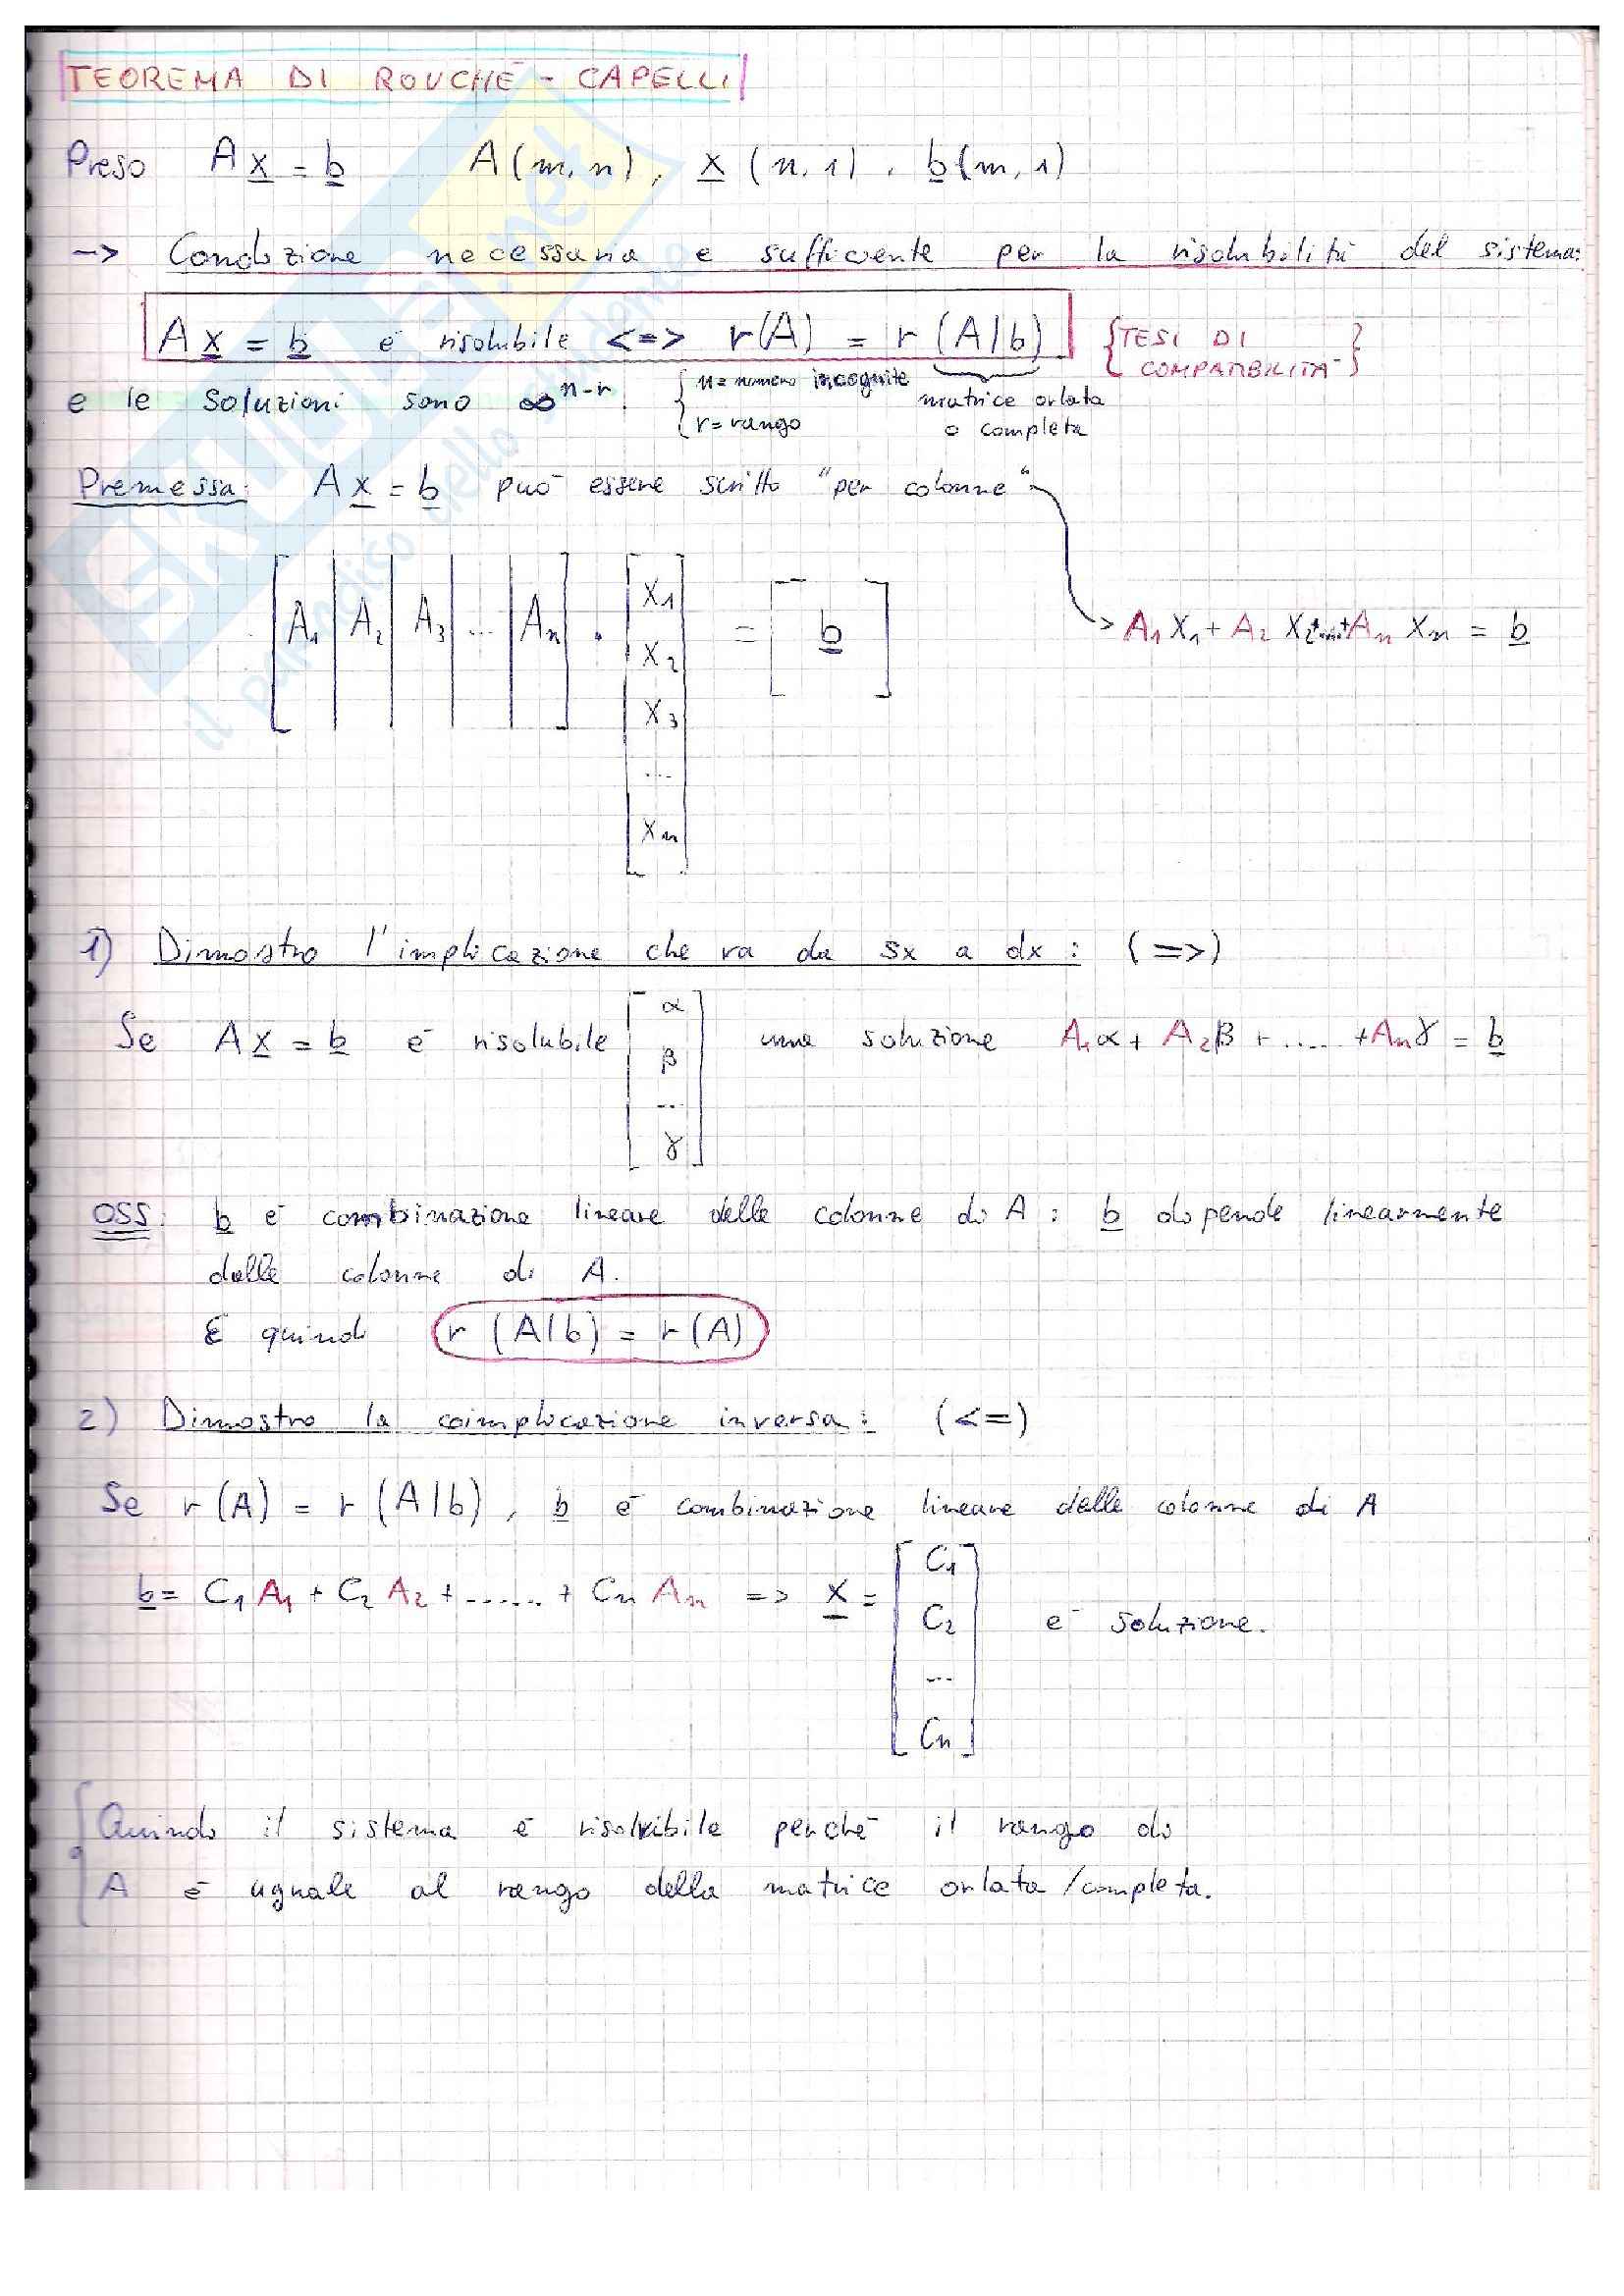 TEOREMA DI ROUCHÉ - CAPELLI
Preso A x = b A(m,n), x (n,1), b(m,1)
-> Condizione necessaria e sufficiente per la risolubilità del sistema:
A x = b è risolubile <=> r(A) = r (A|b) {TESI DI COMPATIBILITÀ}
e le soluzioni sono ∞^n-r. {n = numero incognite r = rango matrice orlata o completa
Premessa: A x = b può essere scritto "per colonne"
[A1 | A2 | A3 | ... | An] · [x1 x2 x3 ... xn] = [b] -> A1 x1 + A2 x2 + ... + An xn = b
1) Dimostro l'implicazione che va da sx a dx : (=>)
Se A x = b è risolubile [α β ... γ] una soluzione A1α + A2β + ..... + Anγ = b
OSS: b è combinazione lineare delle colonne di A : b dipende linearmente
dalle colonne di A.
E quindi r (A|b) = r(A)
2) Dimostro la coimplicazione inversa: (<=)
Se r(A) = r (A|b), b è combinazione lineare delle colonne di A
b = C1 A1 + C2 A2 + ...... + Cn An => x = [C1 C2 ... Cn] è soluzione.
Quindi il sistema è risolvibile perché il rango di
A è uguale al rango della matrice orlata/completa.